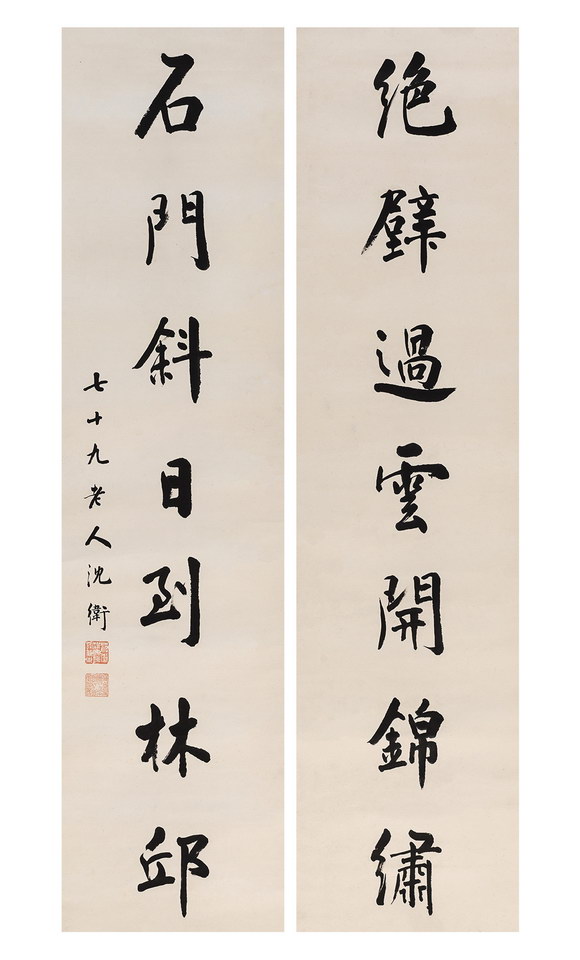 絕壁過雲開錦繡
石門斜日到林邱
七十九老人沈衛